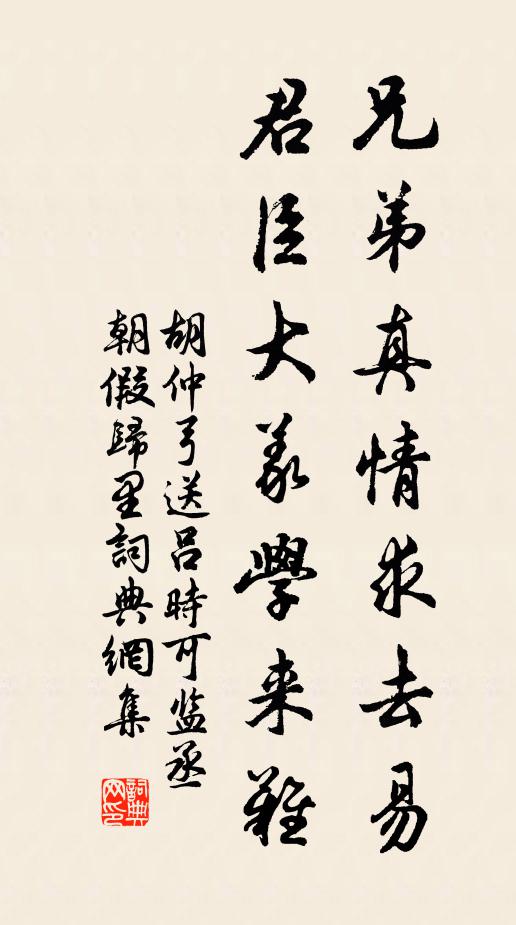 兄弟真情求去易
君臣大义學来難
胡仲弓送呂時可监丞
朝假歸里詞典網集
詞典网印